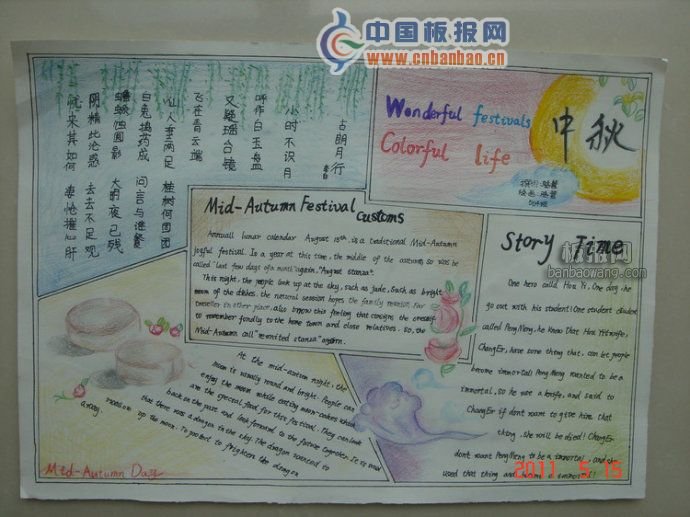 中国板报网
www.cnbanbao.cn
古朗月行
小时不识月
呼作白玉盘
又疑瑶台镜
飞在青云端
仙人垂两足 桂树何团团
白兔捣药成 问言与谁餐
蟾蜍蚀圆影 大明夜已残
阴精此沦惑 去去不足观
忧来其如何 凄怆摧心肝
Wonderful festivals
Colorful life
中秋
Mid-Autumn Festival
Customs
Annuall lunar calendar August 15th, is a traditional Mid-Autumn
joyful festival. In a year at this time, the middle of the autumn, so was be
called "last few days of a month" again, "August stanza".
This night, the people look up at the sky, such as jade, such as bright
moon of the dishes, the natural session hopes the family reunion. Far
traveller in other place, also know this feeling that consigns the oneself
to remember fondly to the home town and close relatives. so, the
Mid-Autumn call "reunited stanza" again.
Story Time
板报网
banbaowang.com
One hero called Hou Yi, One day, he
go out with his student! One student student
called Peng Meng, he know that Hou Yi wife,
Chang Er, have some thing that, can let people
become immortal! Peng Meng wanted to be a
immortal, so he use a knife, and said to
Chang Er if dont want to give him that
thing, she will be died! Chang Er
dont want Peng Meng to be a immortal, and she
used that thing and
At the mid-autumn night, the
moon is usually round and bright. People can
enjoy the moon while eating moon-cakes which
are the special food for this festival. They can look
back on the past and look forward to the future together. It is said
that there was a dragon in the sky. The dragon wanted to
swallow up the moon. To protect to frighten the dragon
away.
Mid-Autumn Day
2011 5 15